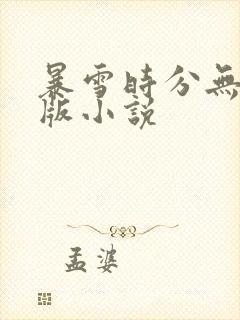 暴雪時分無
版小説
孟婆